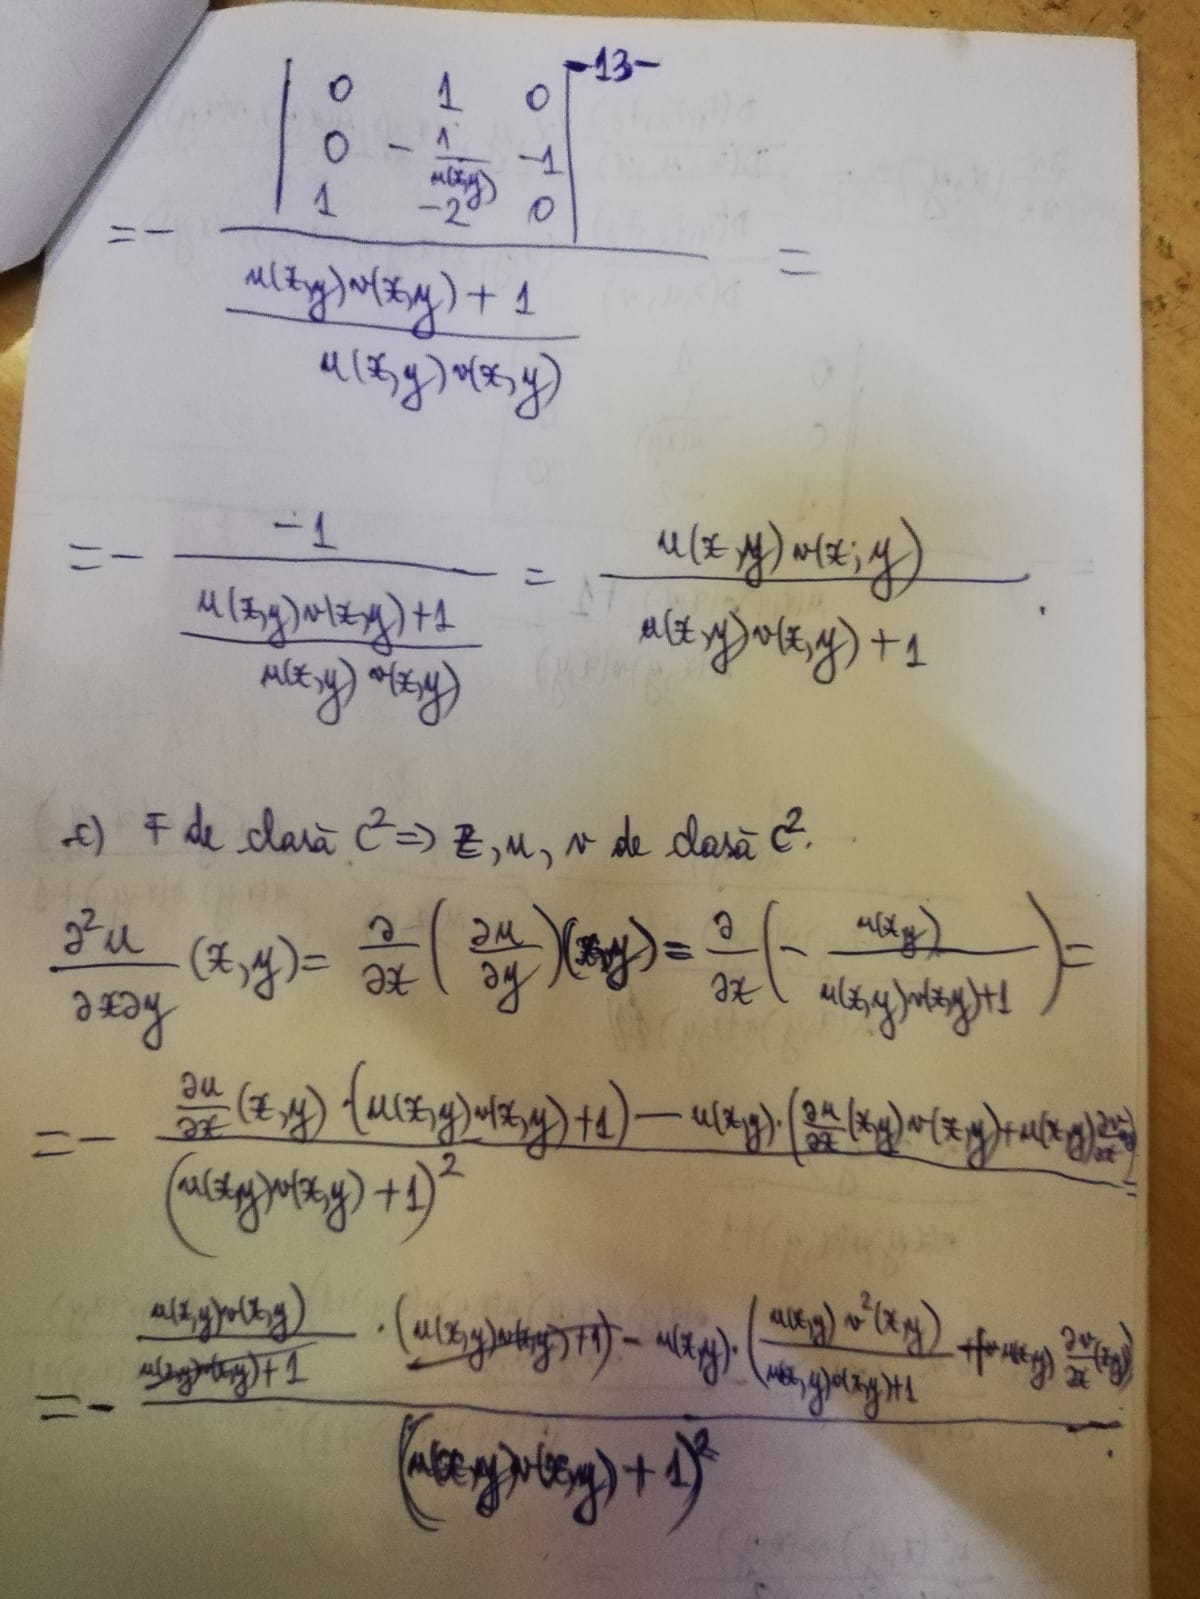 -13-
| 0 1 0 |
| 0 -1/u(x,y) -1 |
| 1 -2 0 |
= - ———————— =
(u(x,y)v(x,y) + 1)/(u(x,y)v(x,y))
= - (-1)/((u(x,y)v(x,y)+1)/(u(x,y)v(x,y))) = (u(x,y)v(x,y))/(u(x,y)v(x,y)+1).
c) F de clasă C² => z, u, v de clasă C².
∂²u/∂x∂y (x,y) = ∂/∂x (∂u/∂y)(x,y) = ∂/∂x (- u(x,y)/(u(x,y)v(x,y)+1)) =
= - (∂u/∂x (x,y) · (u(x,y)v(x,y)+1) - u(x,y)·(∂u/∂x (x,y)v(x,y)+u(x,y)∂v/∂x))/(u(x,y)v(x,y)+1)² =
= - ((u(x,y)v(x,y))/(u(x,y)v(x,y)+1) · (u(x,y)v(x,y)+1) - u(x,y)·((u(x,y)v²(x,y))/(u(x,y)v(x,y)+1) + u(x,y) ∂v/∂x (x,y)))/(u(x,y)v(x,y)+1)².